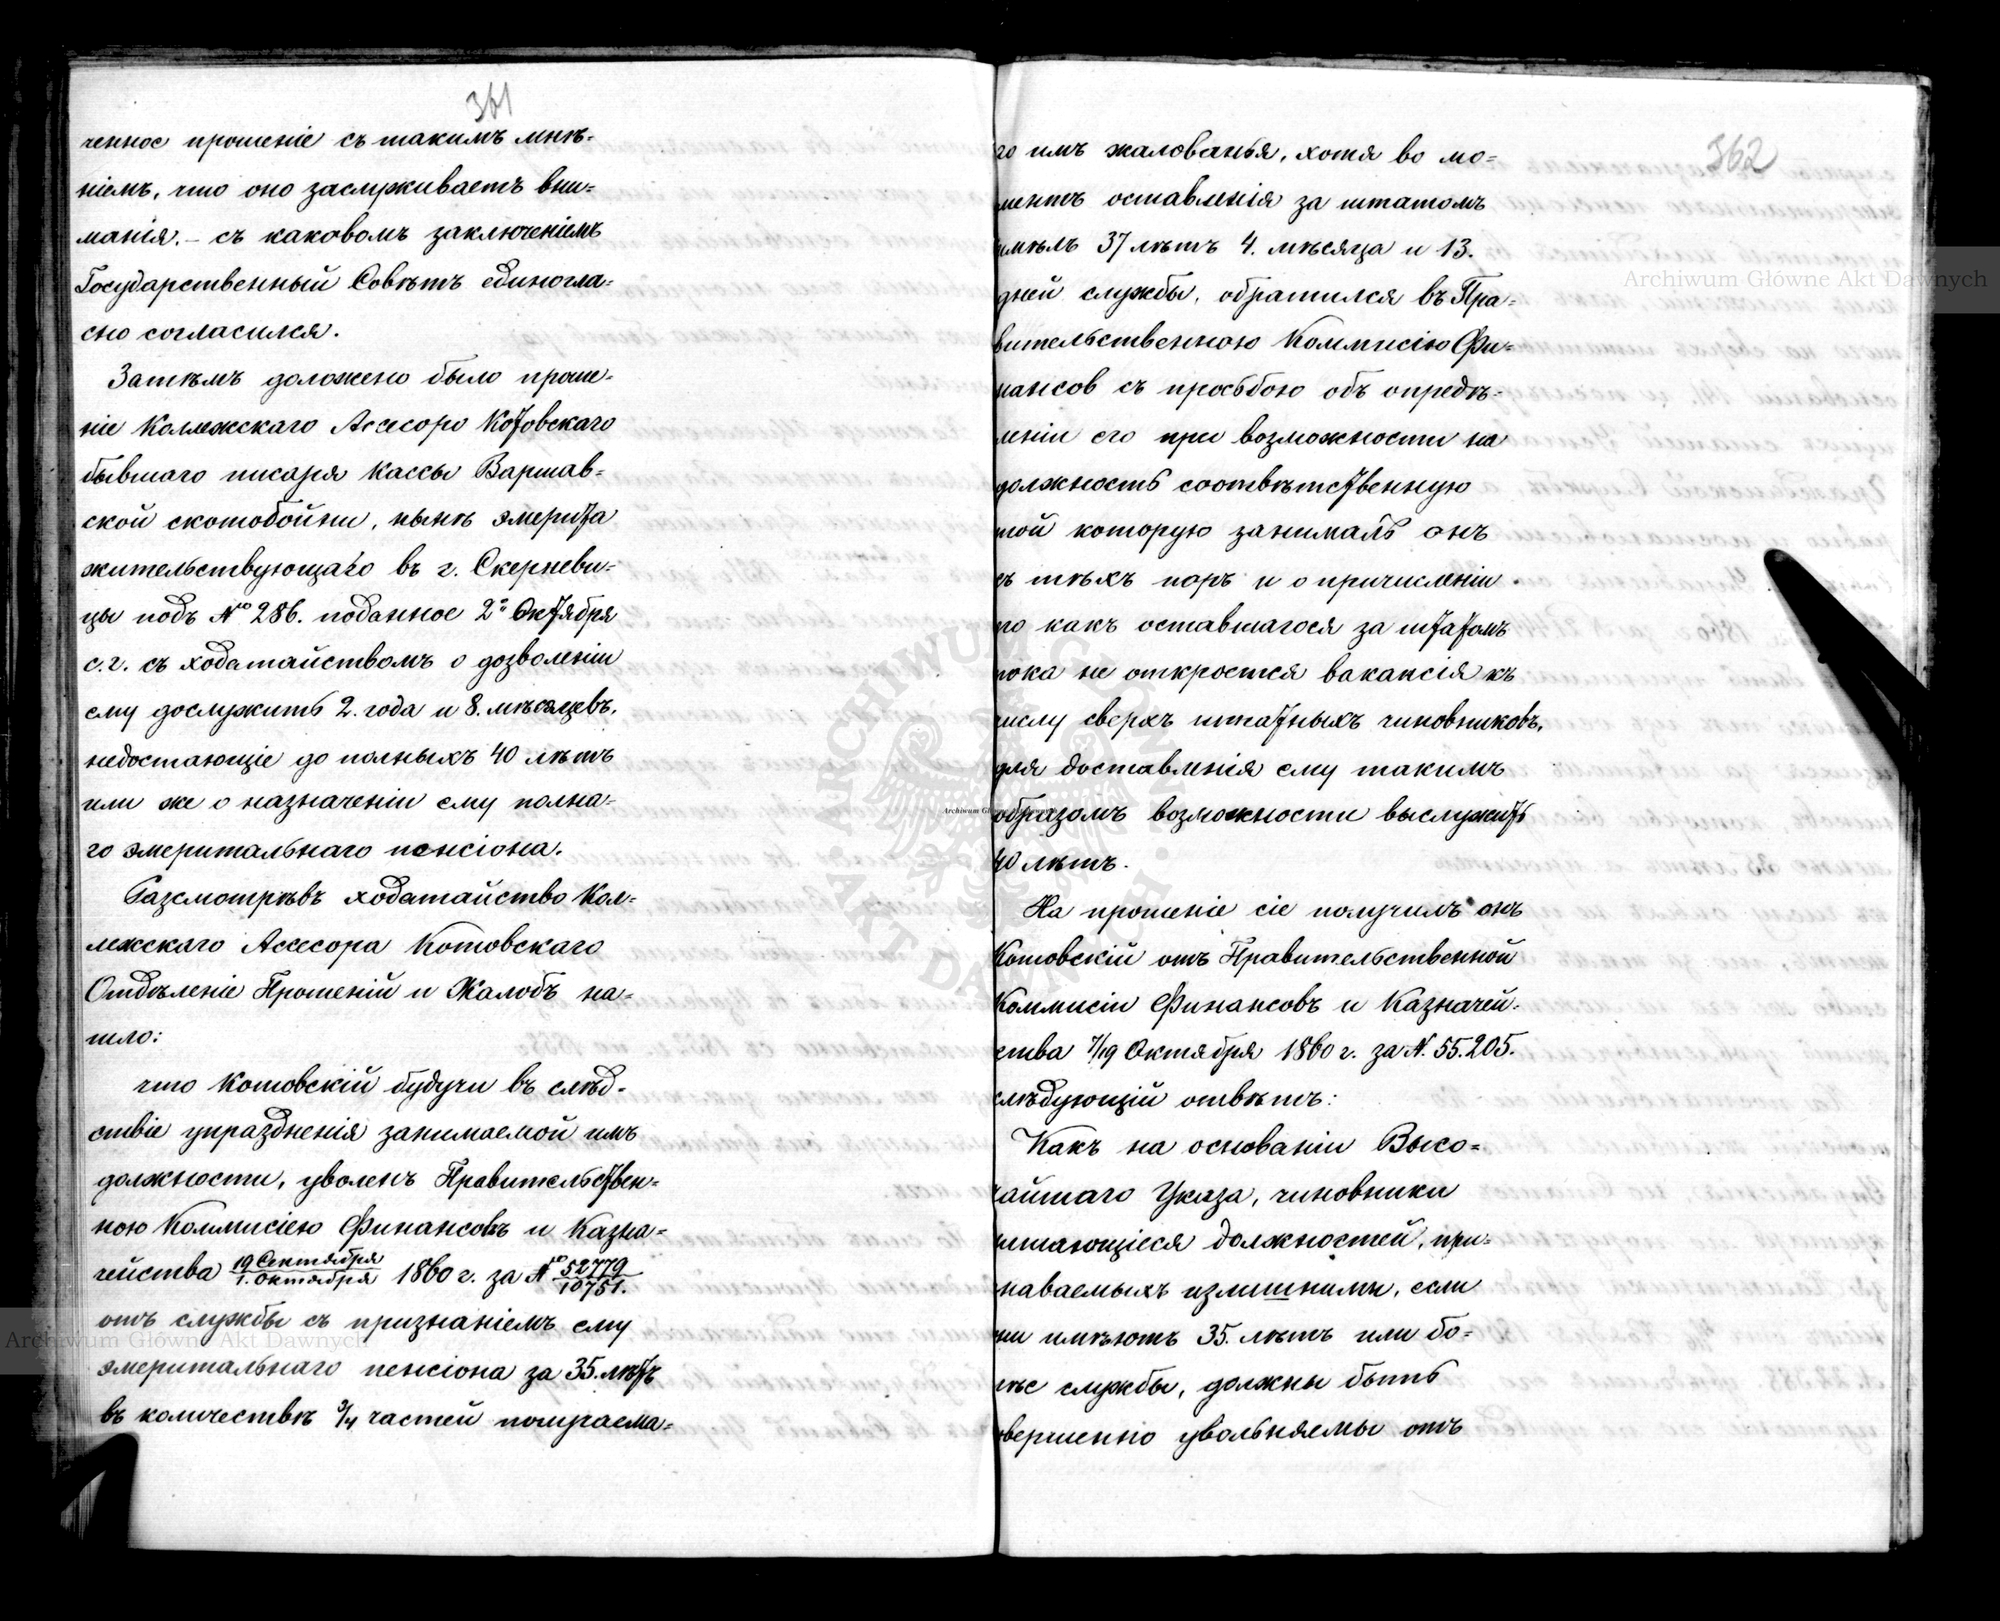 361
ченное прошеніе съ такимъ мнѣ-
ніемъ, что оно заслуживаетъ вни-
манія. – съ каковомъ заключеніемъ
Государственный Совѣтъ единогла-
сно согласился.
Затѣмъ доложено было проше-
ніе Коллежскаго Ассесора Котовскаго
бывшаго писаря Кассы Варшав-
ской скотобойни, нынѣ эмерита
жительствующаго въ г. Скерневи-
цы подъ № 286. поданное 2го Октября
с.г. съ ходатайствомъ о дозволеніи
ему дослужить 2. года и 8. мѣсяцевъ,
недостающіе до полныхъ 40 лѣтъ
или же о назначеніи ему полна-
го эмеритальнаго пенсіона.
Разсмотрѣвъ ходатайство Кол-
лежскаго Ассесора Котовскаго
Отдѣленіе Прошеній и Жалобъ на-
шло:
что Котовскій будучи въ слѣд-
ствіе упраздненія занимаемой имъ
должности, уволенъ Правительствен-
ною Коммисіею Финансовъ и Казна-
чейства 19 Сентября/1. Октября 1860 г. за № 52779/10751.
отъ службы съ признаніемъ ему
эмеритальнаго пенсіона за 35. лѣтъ
въ количествѣ 3/4 частей получаема-
362
го имъ жалованья, хотя во мо-
ментъ оставленія за штатомъ
имѣлъ 37 лѣтъ 4. мѣсяца и 13.
дней службы, обратился въ Пра-
вительственною Коммисію Фи-
нансов съ просьбою объ опредѣ-
леніи его при возможности на
должность соотвѣтственную
той которую занималъ онъ
съ тѣхъ поръ и о причисленіи
его какъ оставшагося за штатомъ
пока не откроется вакансія къ
числу сверхъ штатныхъ чиновниковъ,
для доставленія ему такимъ
образомъ возможности выслужить
40 лѣтъ.
На прошеніе сіе получилъ онъ
Котовскій отъ Правительственной
Коммисіи Финансовъ и Казначей-
ства 7/19 Октября 1860 г. за N. 55.205.
слѣдующій отвѣтъ:
Какъ на основаніи Высо-
чайшаго Указа, чиновники
лишающіеся должностей, при-
знаваемыхъ излишними, если
они имѣютъ 35. лѣтъ или бо-
лѣе службы, должны быть
совершенно увольняемы отъ
Archiwum Główne Akt Dawnych
Archiwum Główne Akt Dawnych
Archiwum Główne Akt Dawnych
ARCHIWUM GŁÓWNE AKT DAWNYCH